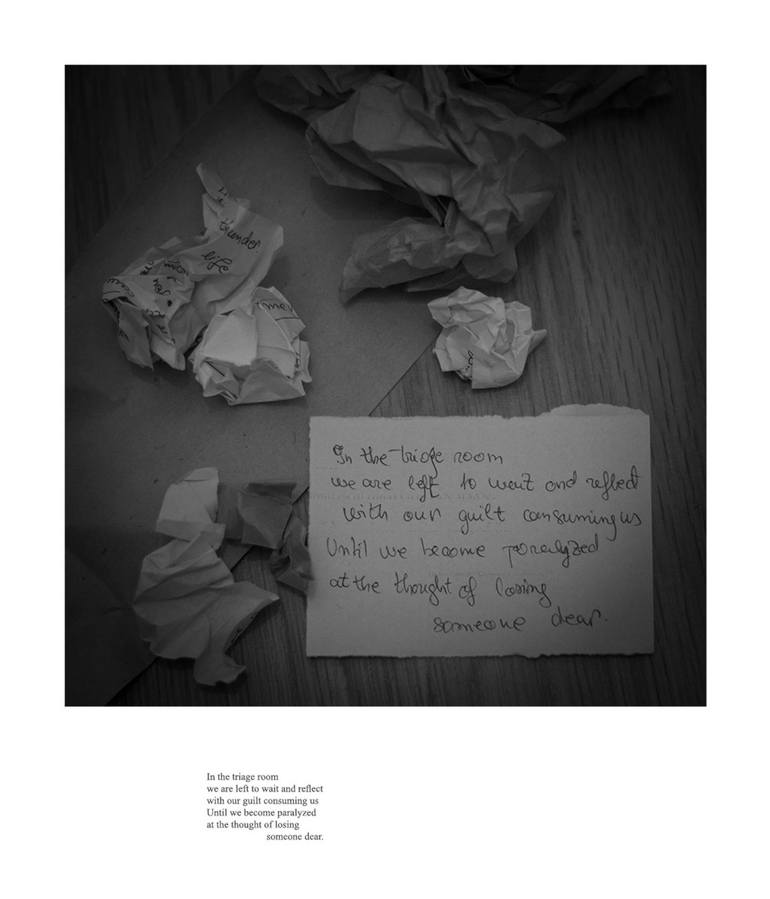 thunder
life
In the triage room
we are left to wait and reflect
with our guilt consuming us
Until we become paralyzed
at the thought of losing
someone dear.
In the triage room
we are left to wait and reflect
with our guilt consuming us
Until we become paralyzed
at the thought of losing
someone dear.